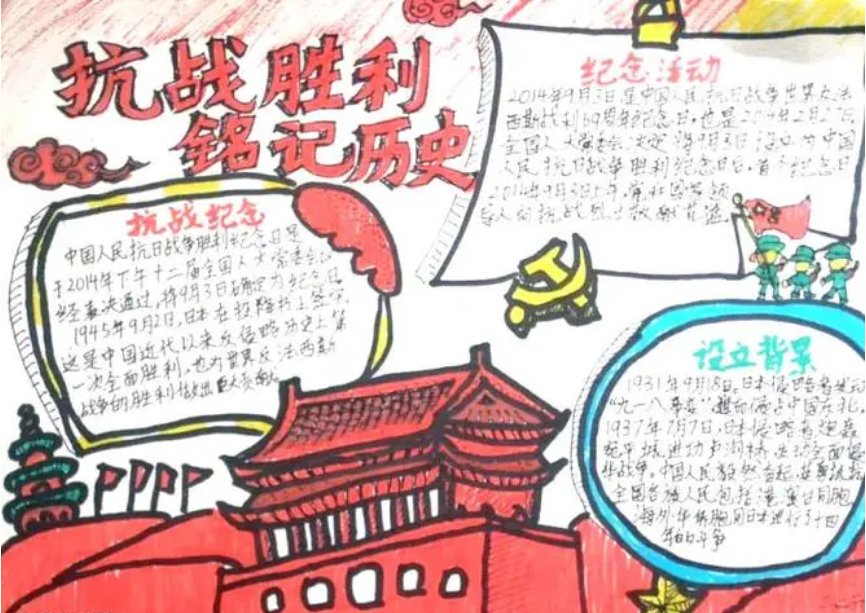 抗战胜利
铭记历史
抗战纪念
中国人民抗日战争胜利纪念日是
于2014年下午十二届全国人大常委会
经表决通过,将9月3日确定为纪念日
1945年9月2日,日本在投降书上签字,
这是中国近代以来反侵略历史上第
一次全面胜利,也为世界反法西斯
战争的胜利做出重大贡献
纪念活动
2014年9月3日是中国人民抗日战争世界反法
西斯战利69周年纪念日,也是2014年2月27日
全国人大常委会决定将9月3日设立为中国
人民抗日战争胜利纪念日后,首个纪念日
2014年9月3日上午,
设立背景
1931年9月18日,日本侵略者
“九一八事变”
1937年7月7日,日本侵略者炮轰
宛平城,进攻卢沟桥,发动全面侵
华战争,中国人民毅然奋起,英勇抵抗
全国各族人民包括港、澳台同胞
海外华侨胞同日本进行了十四
年的斗争